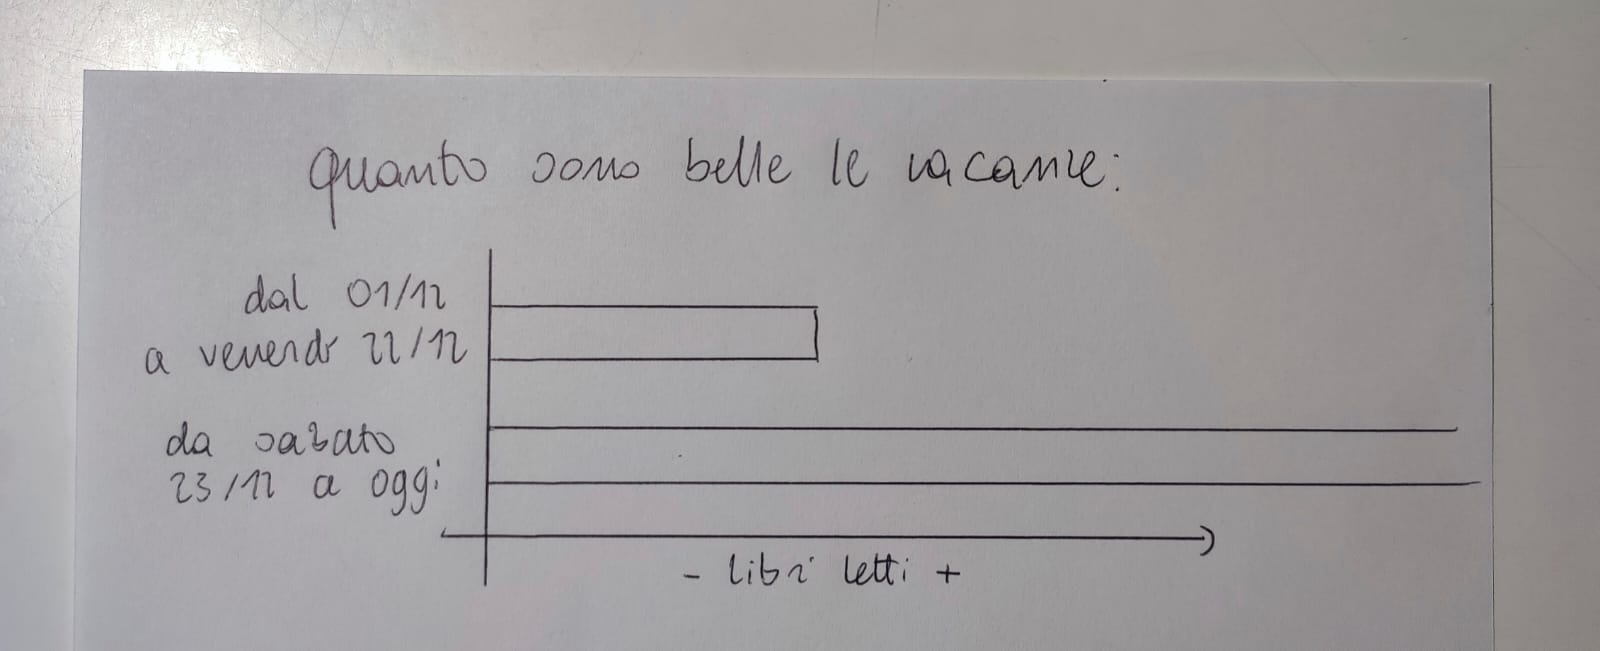 quanto sono belle le vacanze:
dal 01/12
a venerdì 22/12
da sabato
23/12 a oggi
- libri letti +